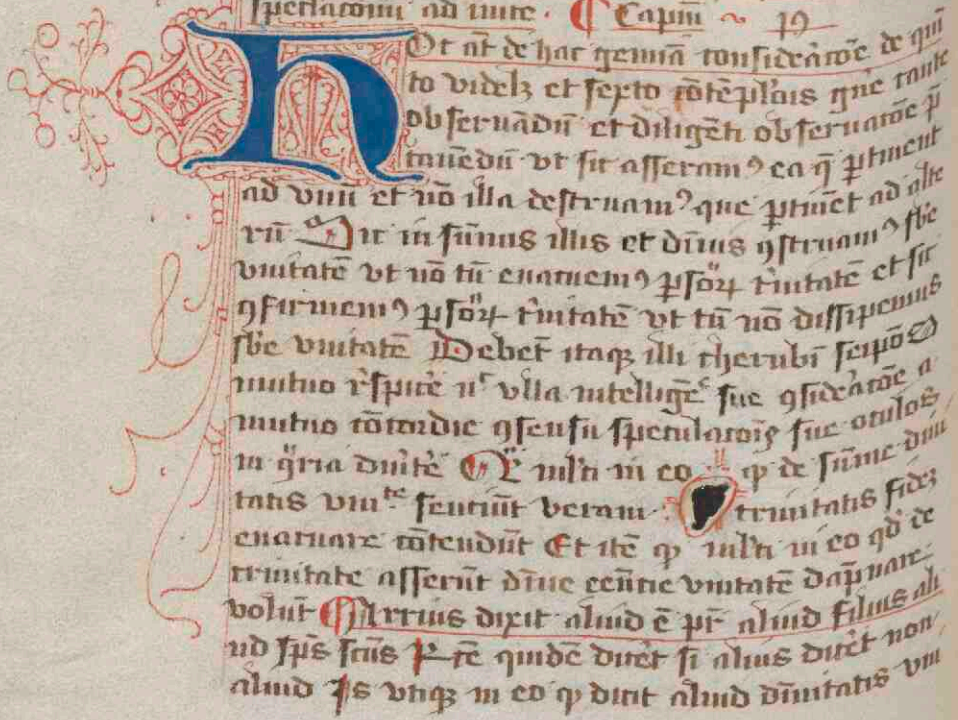 speculationis ad inuicē. ¶ Capm̄ ~ 19
Hoc at̄ de hac gemīa consideratōe de quī
to videlꝫ et sexto cōtēplōis gn̄e caute
obseruādū et diligēti obseruatōe p̄
cauēdū vt sic asseramꝰ ea q̄ ꝑtinent
ad vnū et nō illa destruamꝰ que ꝑtinēt ad alte
rū Sic in sūmus illis et dīnis ꝯstruamꝰ sb̄e
vnitatē vt nō tn̄ euacuemꝰ ꝑsōꝝ tⁱnitatē et sic
ꝯfirmemꝰ ꝑsōꝝ tⁱnitatē vt tn̄ nō dissipemus
sb̄e vnitatē Debēt itaqꝫ illi cherubī seipōs
mutuo rˢpicē nᶜ vlla intelligēᶜ sue ꝯsideratōe a
mutuo cōcordie ꝯsensu speculacōiꝫ sue oculos
in ꝯͣria diuītē Qꝫ mlˡti in eo ꝙ de sūme diui
tatis vniᵗᵉ senciūt veram trinitatis fidez
euacuare cōtendūt Et itē ꝙ mlˡti in eo qd̄ de
trinitate asserūt dīne eēncie vnitatē dāpnare
volūt Arrius dixit aliud ē pr̄ aliud filius ali
ud sp̄s sc̄us Rcē quidē dicēt si alius dicēt non
aliud Is vtiqꝫ in eo ꝙ dicit aliud dīnitatis vni